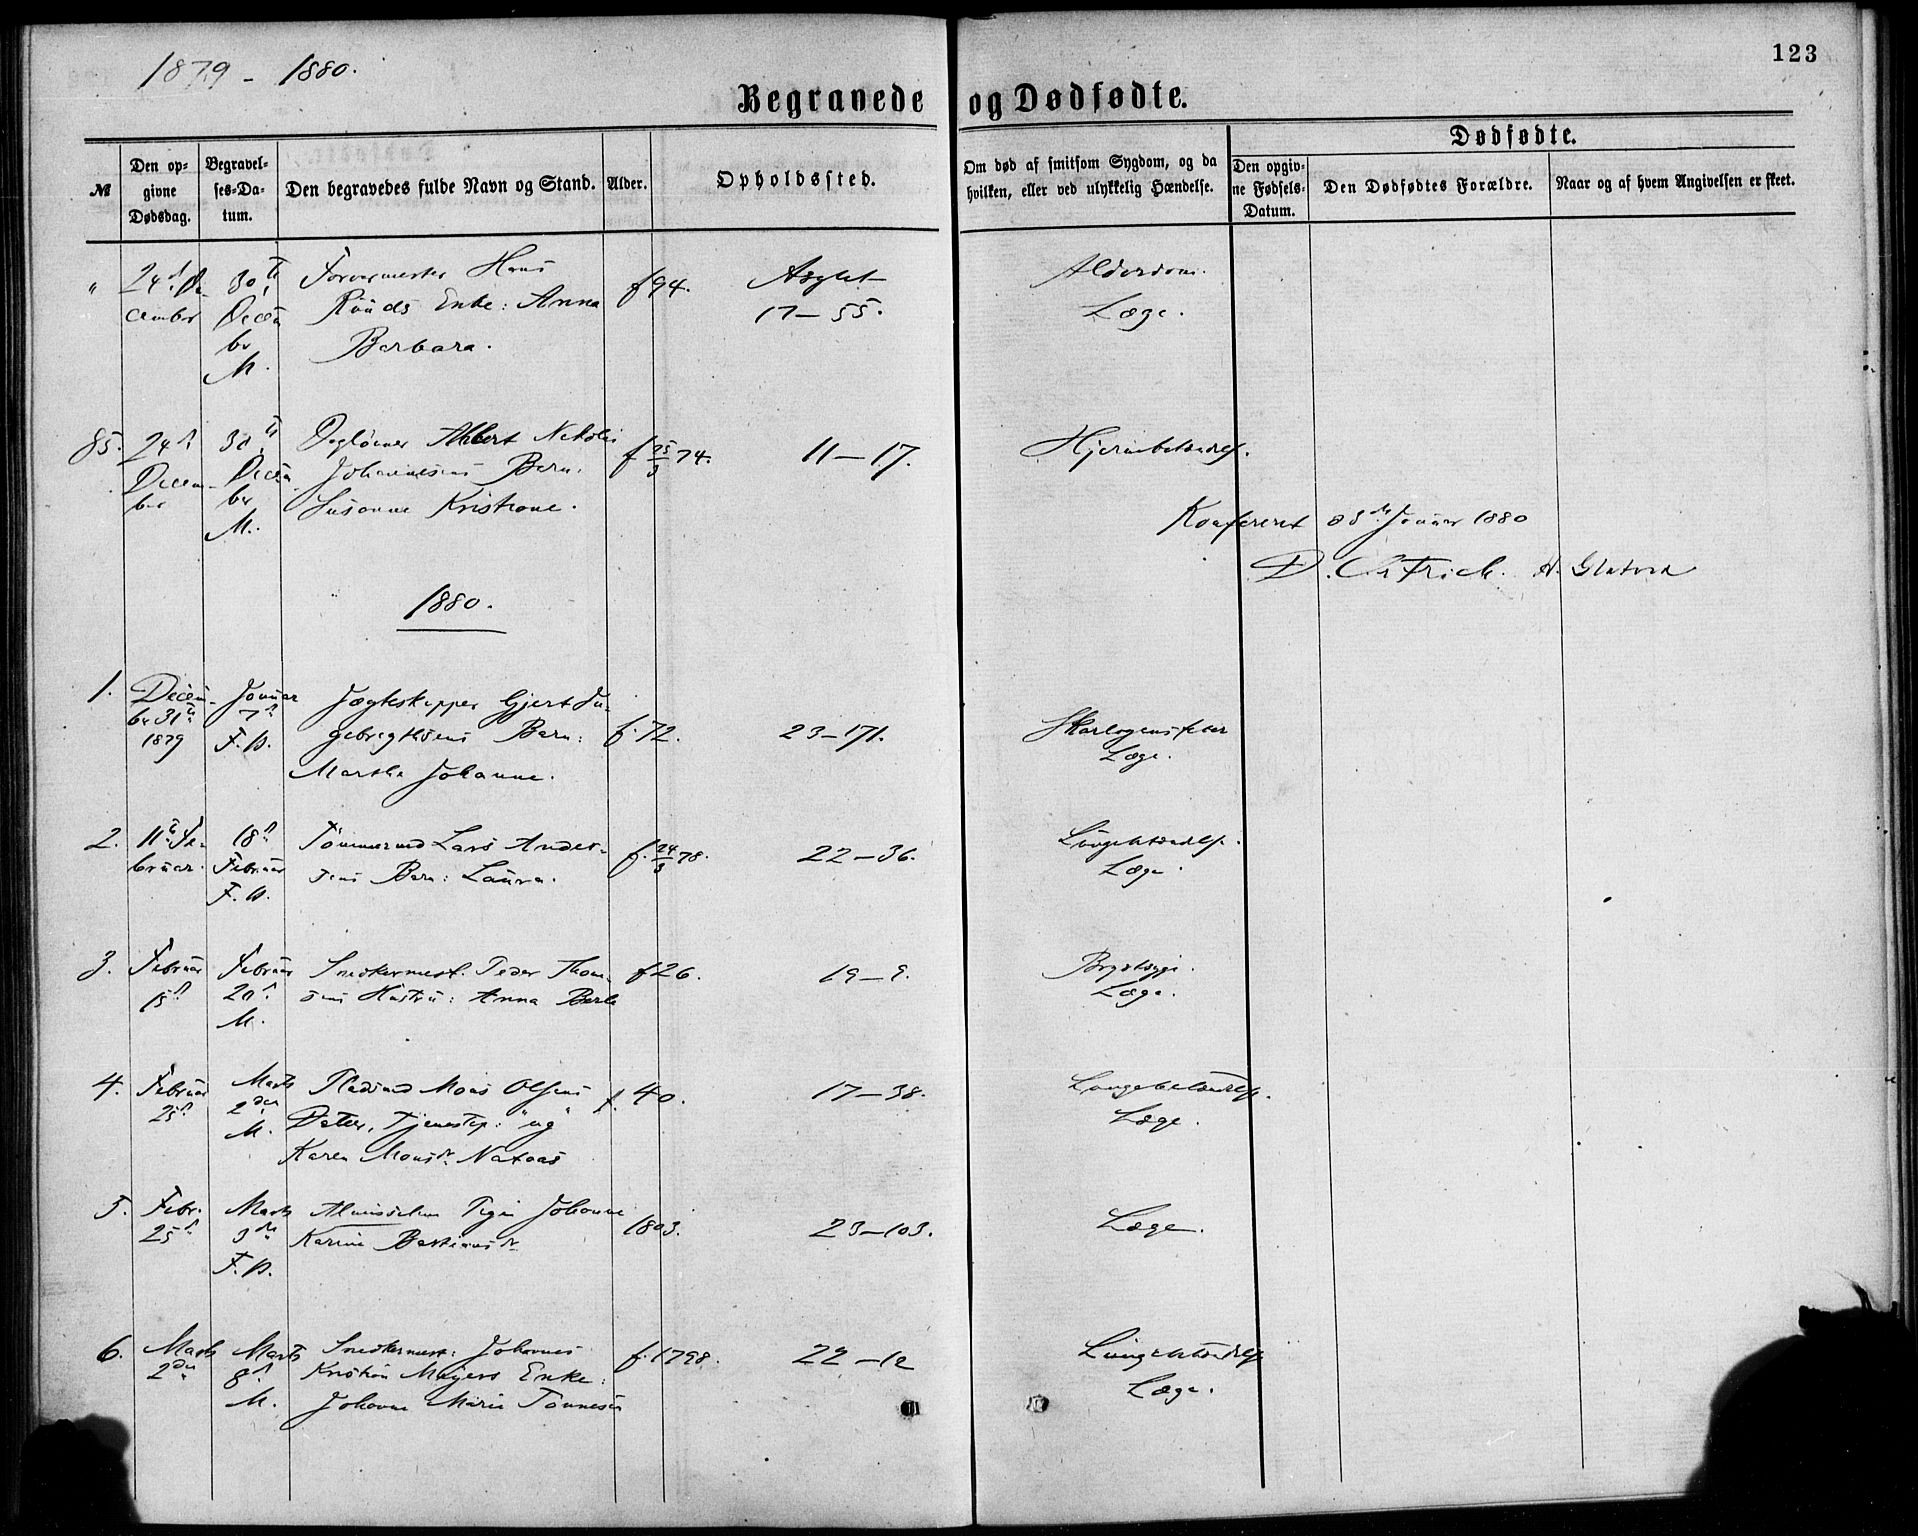 1879 - 1880.
123
Begravede og Dødfødte.
Dødfødte.
№
Den op-
givne
Dødsdag.
Begravel-
ses-Da-
tum.
Den begravedes fulde Navn og Stand.
Alder.
Opholdssted.
Om død af smitsom Sygdom, og da
hvilken, eller ved ulykkelig Hændelse.
Den opgiv-
ne Fødsels-
Datum.
Den Dødfødtes Forældre.
Naar og af hvem Angivelsen er skeet.
"
24d De-
cember
30te
Decem
br
M.
Farvermester Hans
Enke: Anna
Barbara.
f 94.
Asylet
17-55.
Alderdom.
Læge.
85.
24d
Decem-
ber
30te
Decem
ber
M.
Albert Nikolai
Johannesens Barn:
Susanne Kristiane.
f 25/3 74.
11-17.
Konfereret d 8de Januar 1880
1880.
1.
Decem-
br 31te
1879
Januar
7d
F. B.
Jægteskipper Gjert In-
gebrigtsens Barn:
Martha Johanne.
f. 72.
23-171.
Skarlagensfeber
Læge.
2.
11te Fe-
bruar.
18d
Februar
F. B.
Tømmermd Lars Ander-
sens Barn: Laura.
f. 24/3 78.
22-36.
Lungebetændelse.
Læge.
3.
Februar
15d
Februar
20d
M.
Snedkermest. Peder Thom-
sens Hustru: Anna
f 26.
19-9.
Brystsyge.
Læge.
4.
Februar
25d
Marts
2den
M.
Pladsmd Mons Olsens
Datter, Tjenestep: ug
Karen Monsdr. Nataas
f. 40.
17-38.
Lungebetændelse.
Læge.
5.
Febr.
25d
Marts
3die
F. B.
Pigen Johanne
Karine Bastiansdr
1803.
23-103.
Læge.
6.
Marts
2den
Marts
8d
M.
Snedkermest: Johannes
Kristian Meyers Enke:
Johanne Marie Tønnesen
f. 1798.
22-12
Lungebetændelse
Læge.